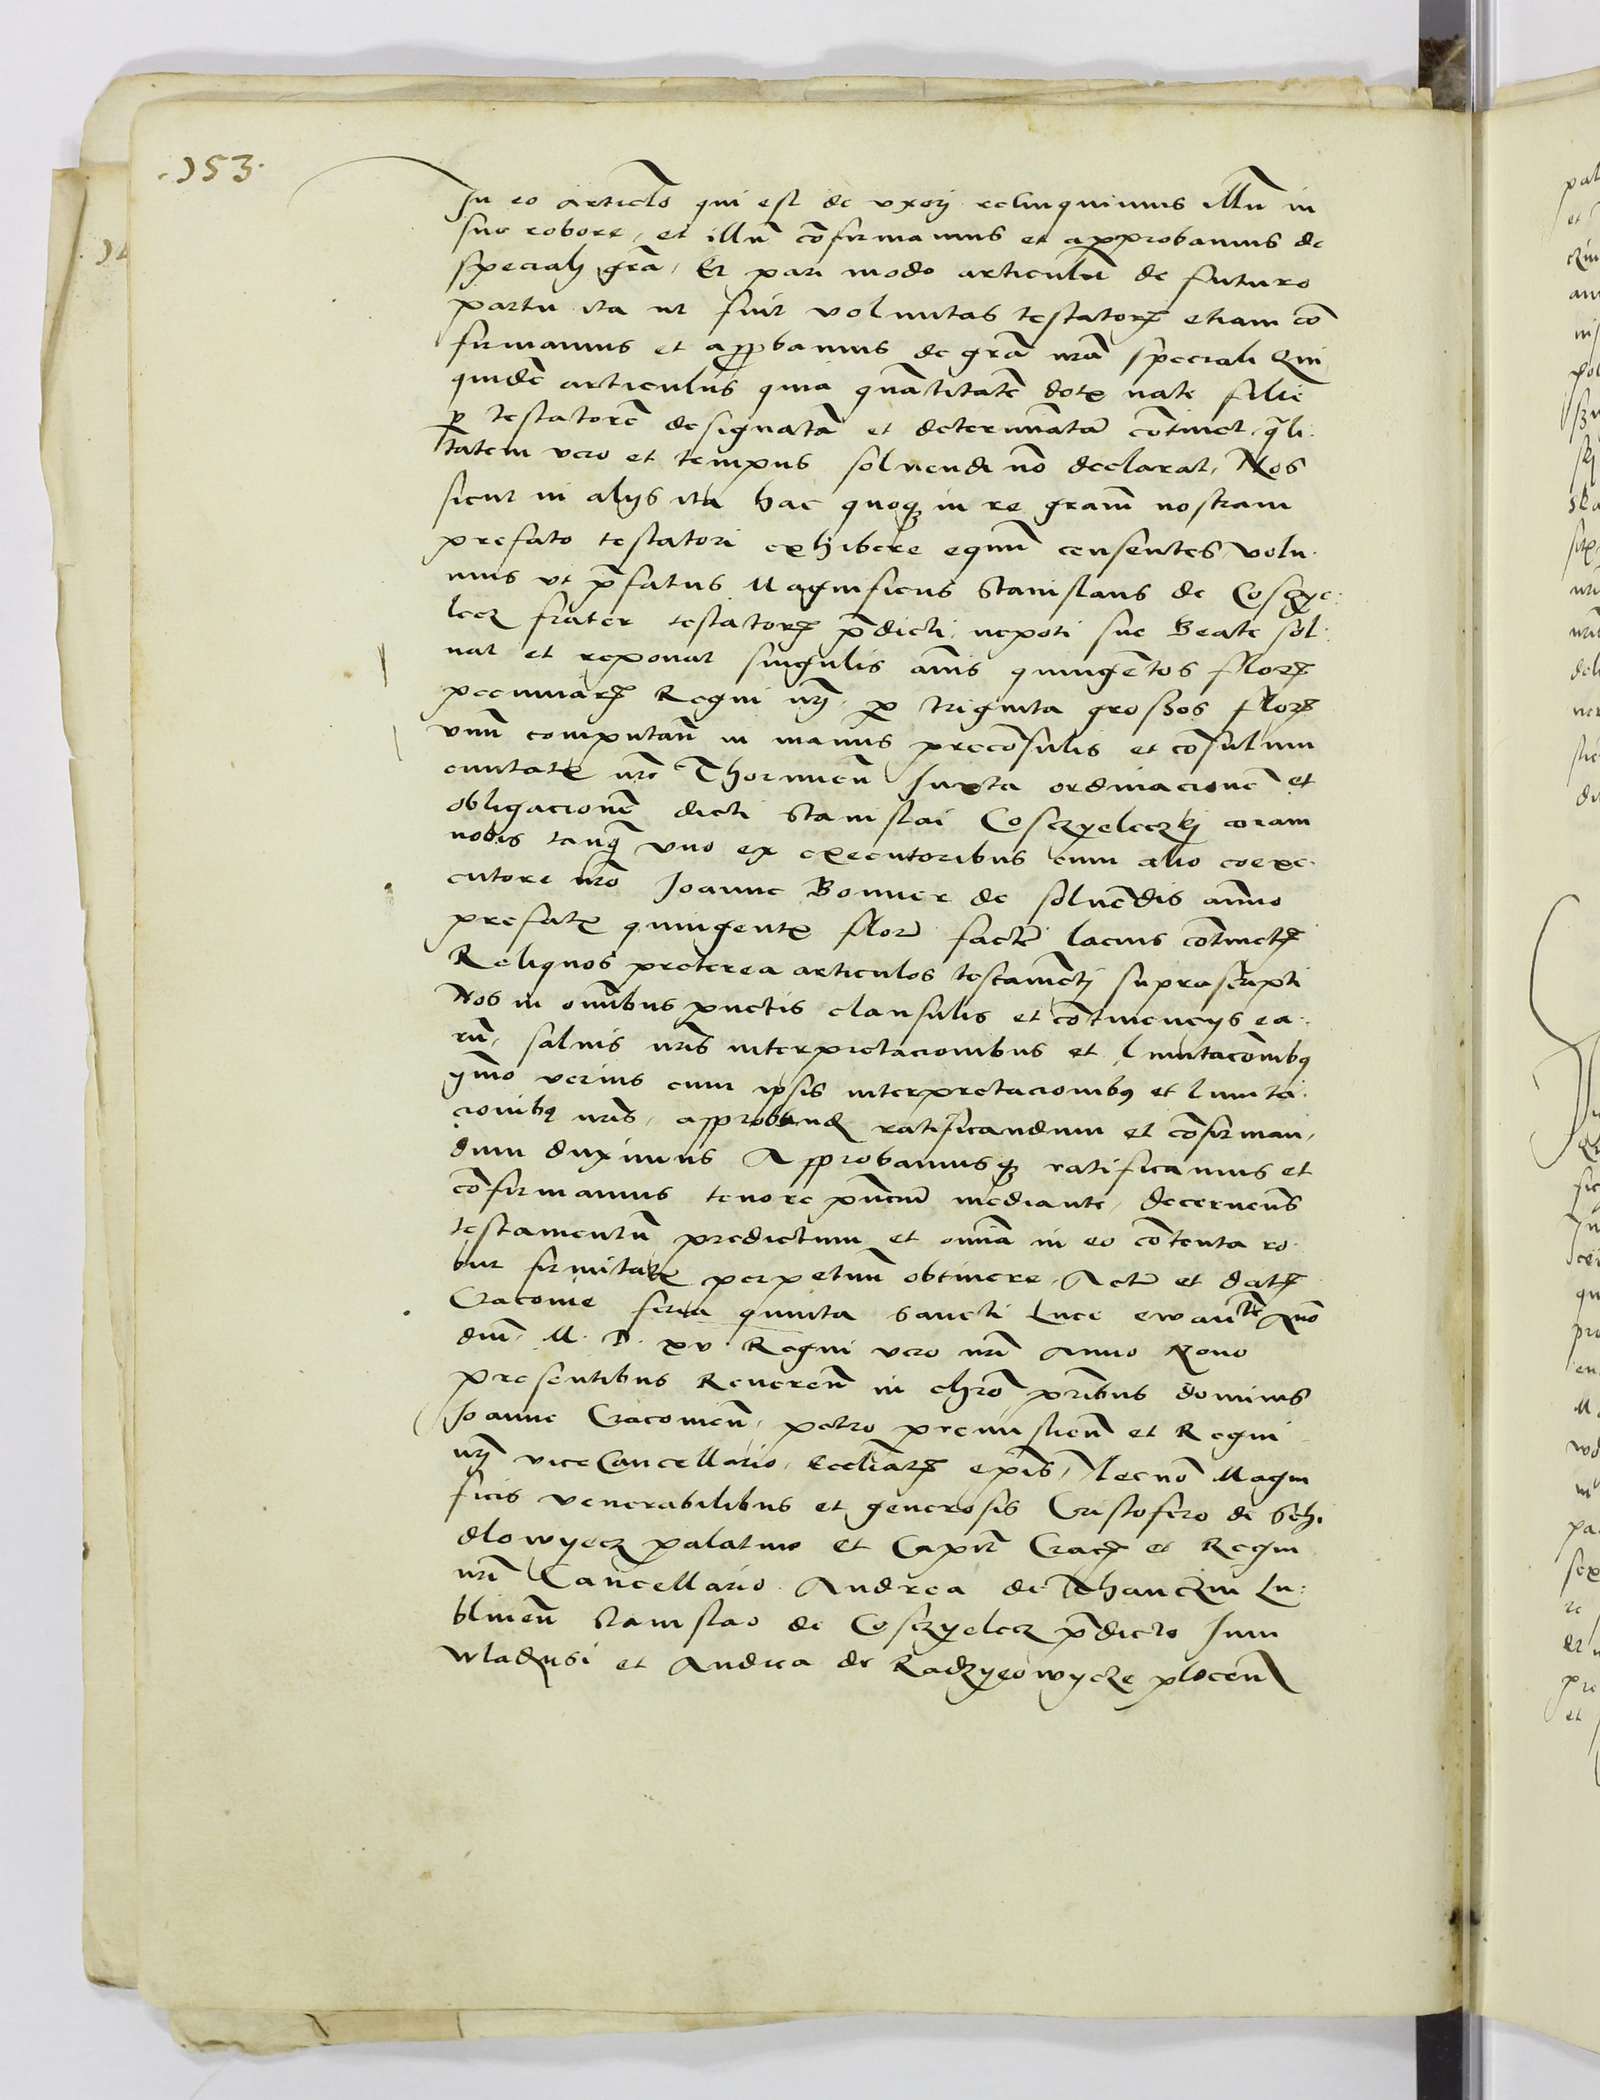 .153.
In eo articlo qui est de vxorj relinquimus illu in
suo robore, et illu cofirmamus et approbamus de
specialj gra, Et pari modo articulu de futuro
partu ita ut fuit voluntas testatoris etiam co
firmamus et approbamus de gra nra speciali Qui
quide articulus quia quatitate dotis nate filie
p testatore designata et determinata cotinet, qli:
tatem vero et tempus soluendi no declarat, Nos
sicut in alijs ita hac quoq in re gram nostram
prefato testatori exhibere equu censentes, volu:
mus vt pfatus Magnificus Stanislaus de Cosczye:
lecz frater testatoris pdicti, nepoti sue Beate sol:
uat et reponat singulis anis quingetos flor
pecuniar Regni nrj, p triginta grossos flor
vnu computan in manus precosulis et cosulum
ciuitatis nre Thorunien Iuxta ordinacione et
obligacione dicti Stanislai Cosczyeleczkj coram
nobis tanq vno ex executoribus cum alio coexe:
cutore nro Joanne Bonner de soluedis anno
prefatis quingentis flor facte lacius cotinet
Reliquos preterea articulos testametj suprascripti
Nos in omibus puctis clausulis et cotinencijs ea:
ru, saluis nris interpretacionibus et limitacoibq
ymo verius cum ipsis interpretacionibq et limita:
cionibq nris, approband ratificandum et cofirman,
dum duximus Approbamusq ratificamus et
cofirmamus tenore pnciu mediante, decernens
testamentu predictum et omia in eo cotenta ro
bur firmitatis perpetuu obtinere, Actu et dat
Cracouie feria quinta Sancti Luce ewan te Ano
dni M. D. xv. Regni vero nri Anno Nono
presentibus Reueren in chro pribus dominis
Joanne Cracouien, petro premislien et Regni
nrj viceCancellario, Eccliar epis, Necno Magni
ficis venerabilibus et generosis Cristofero de Schi
dlowyecz palatino et Capit Crac et Regni
nri Cancellario Andrea de Thanczin Lu:
blinen Stanislao de Cosczyelecz pdicto Iuni
wladisi et Andrea de Radzyeowycze plocen